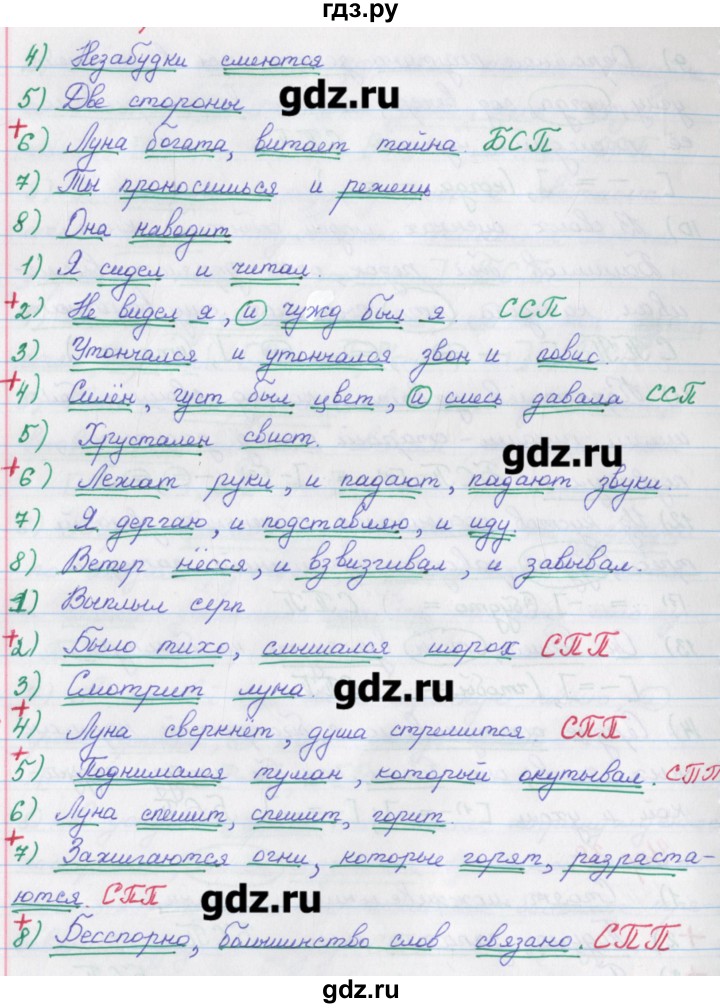 гдз.ру
4) Незабудки смеются
5) Две стороны
gdz.ru
+6) Луна богата, витает тайна БСП
7) Ты проносишься и режешь
8) Она наводит
1) Я сидел и читал.
+2) Не видел я, и чужд был я. ССП
3) Утончался и утончался звон и повис.
+4) Силён, густ был цвет, и смесь давала ССП
5) Хрустален свист.
gdz.ru
+6) Лежат руки, и падают, падают звуки.
7) Я дергаю, и подставляю, и иду.
8) Ветер нёсся, и взвизгивал, и завывал.
1) Выплыл серп
+2) Было тихо, слышался шорох СПП
3) Смотрит луна
gdz.ru
+4) Луна сверкнёт, душа стремится. СПП
+5) Поднимался туман, который окутывал. СПП
6) Луна спешит, спешит, горит.
+7) Зажигаются огни, которые горят, разраста-
ются. СПП
gdz.ru
+8) Бесспорно, большинство слов связано. СПП
gdz.ru